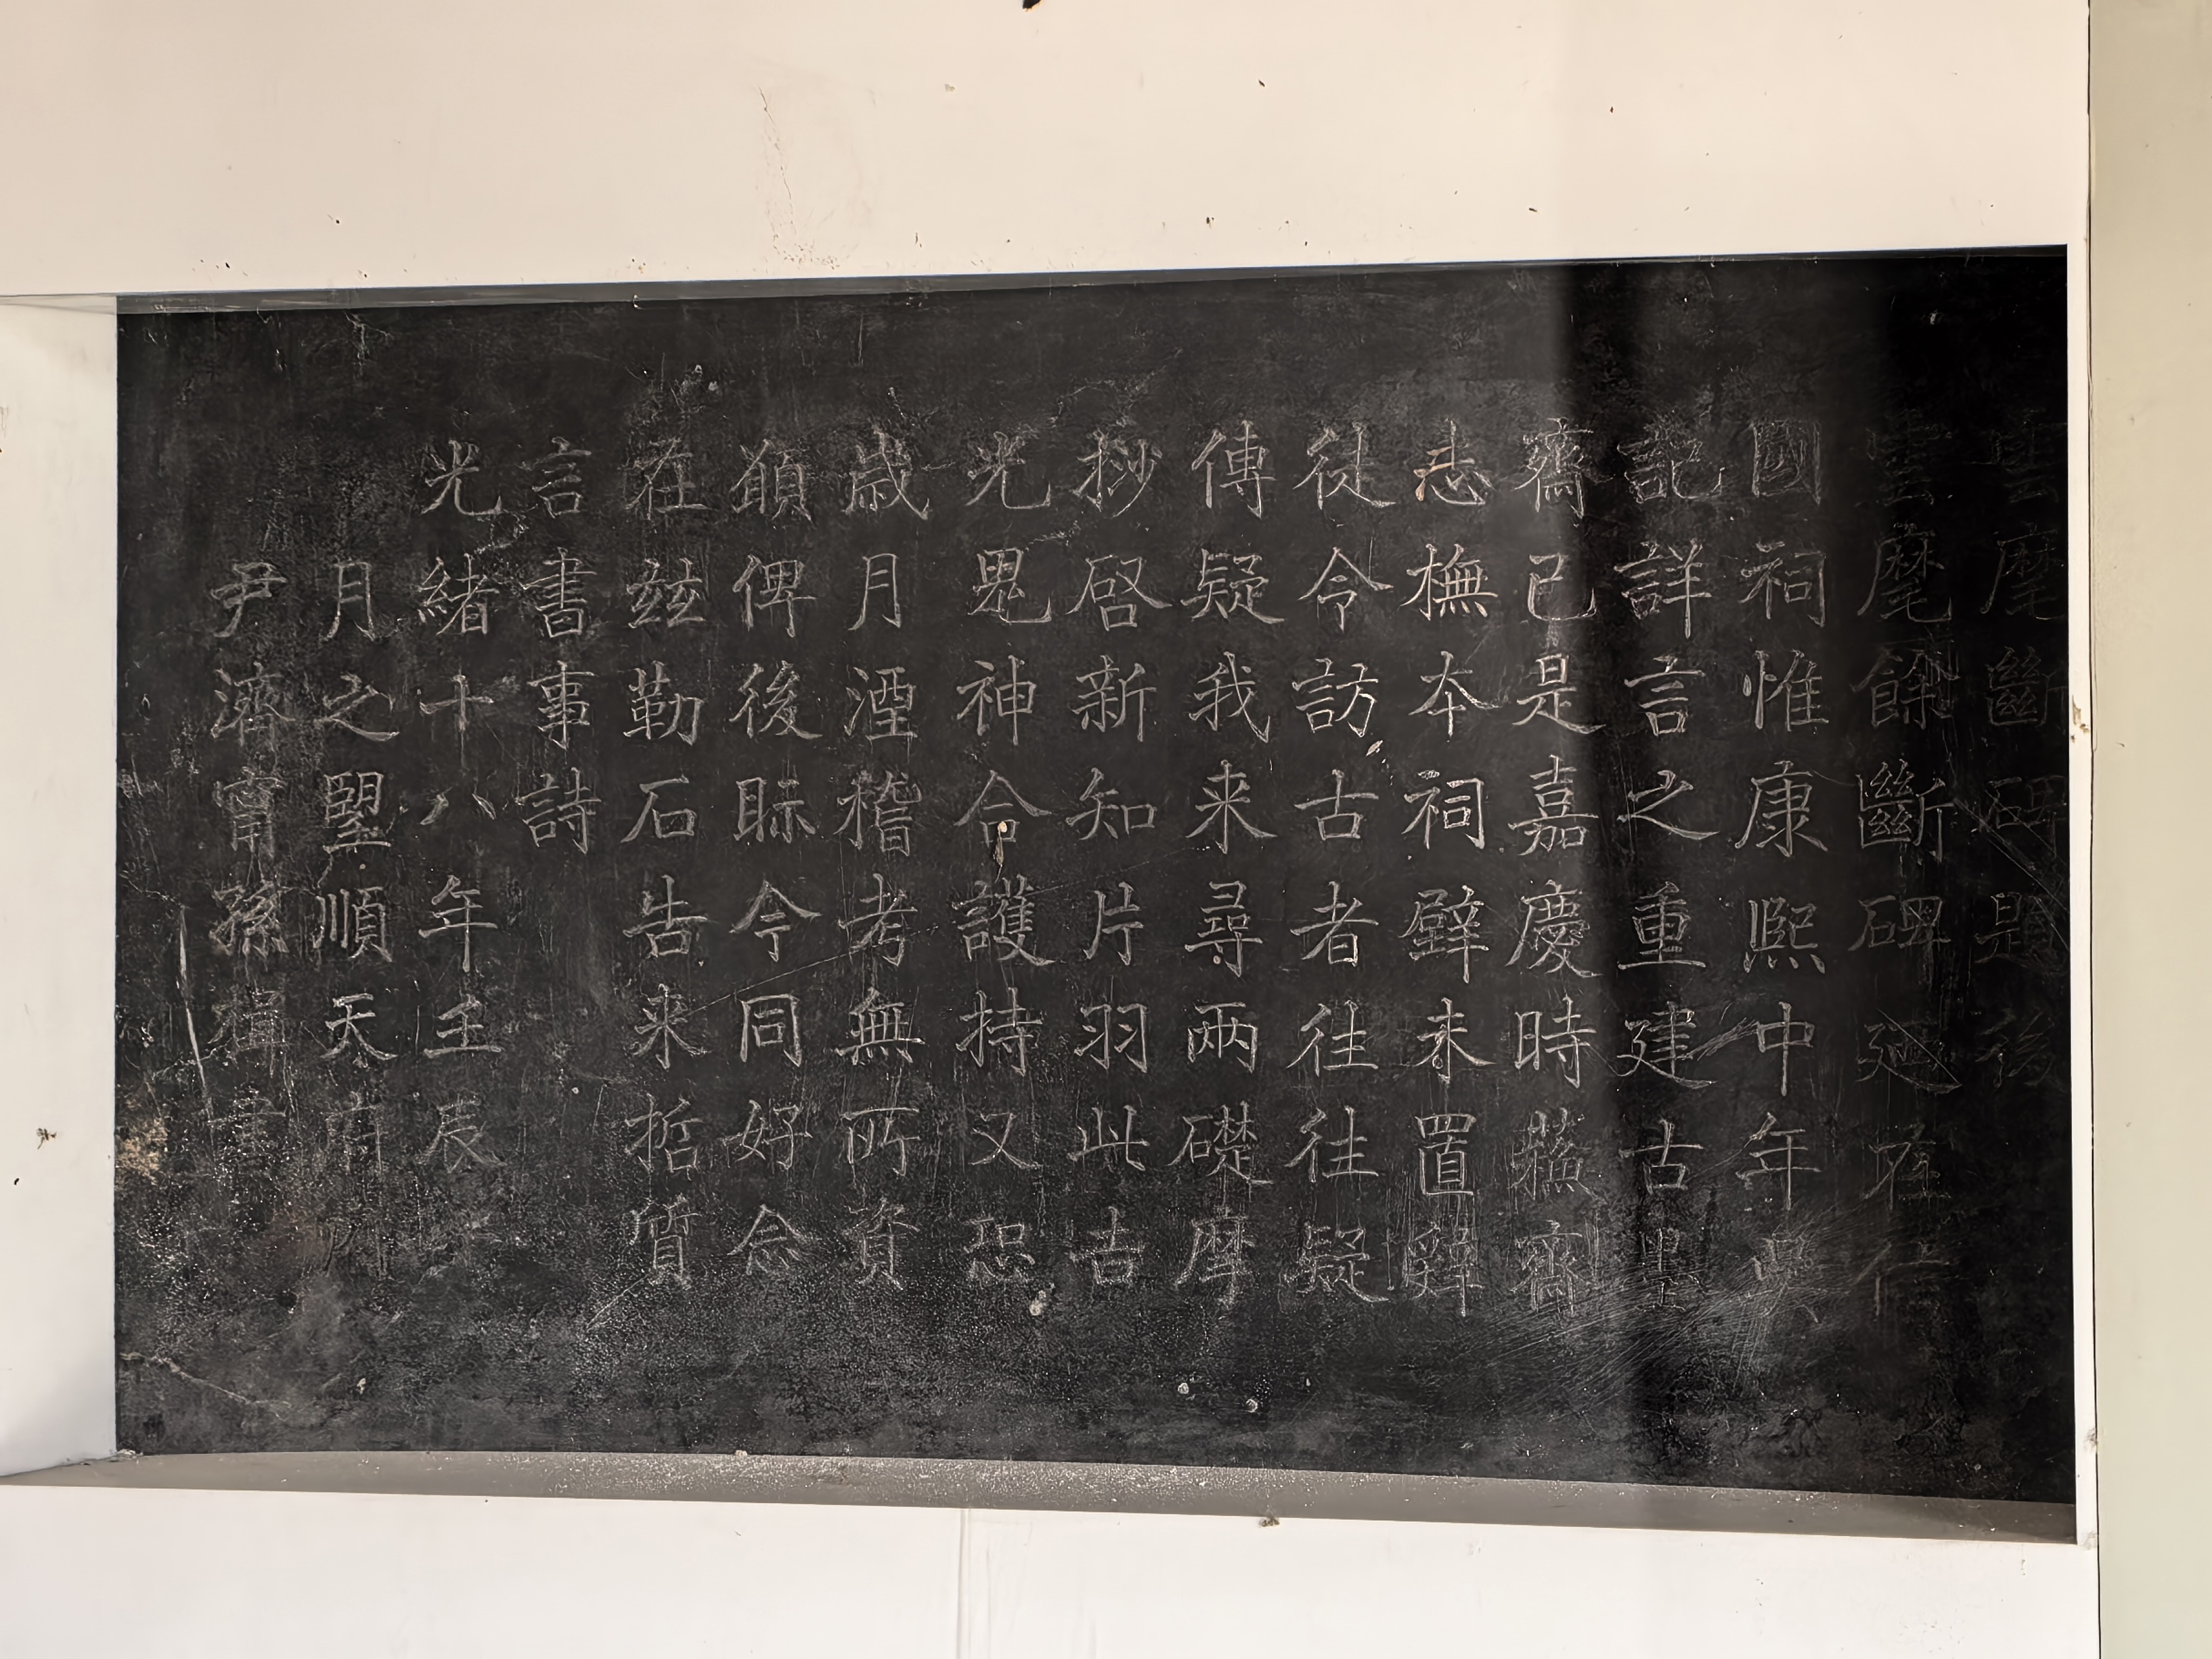 雲麾斷碑題後
雲麾餘斷碑迹在信
國祠惟康熙中年興
記詳言之重建古墨
齋已是嘉慶時蓀齋
志撫本祠壁未置辭
徒令訪古者往往疑
傳疑我来尋兩礎摩
抄啓新知片羽此吉
光鬼神合護持又恐
歳月湮稽考無所資
額俾後眎今同好念
在兹勒石告来哲質
言書事詩
光緒十八年壬辰
月之朢順天府
尹濟甯孫楫書